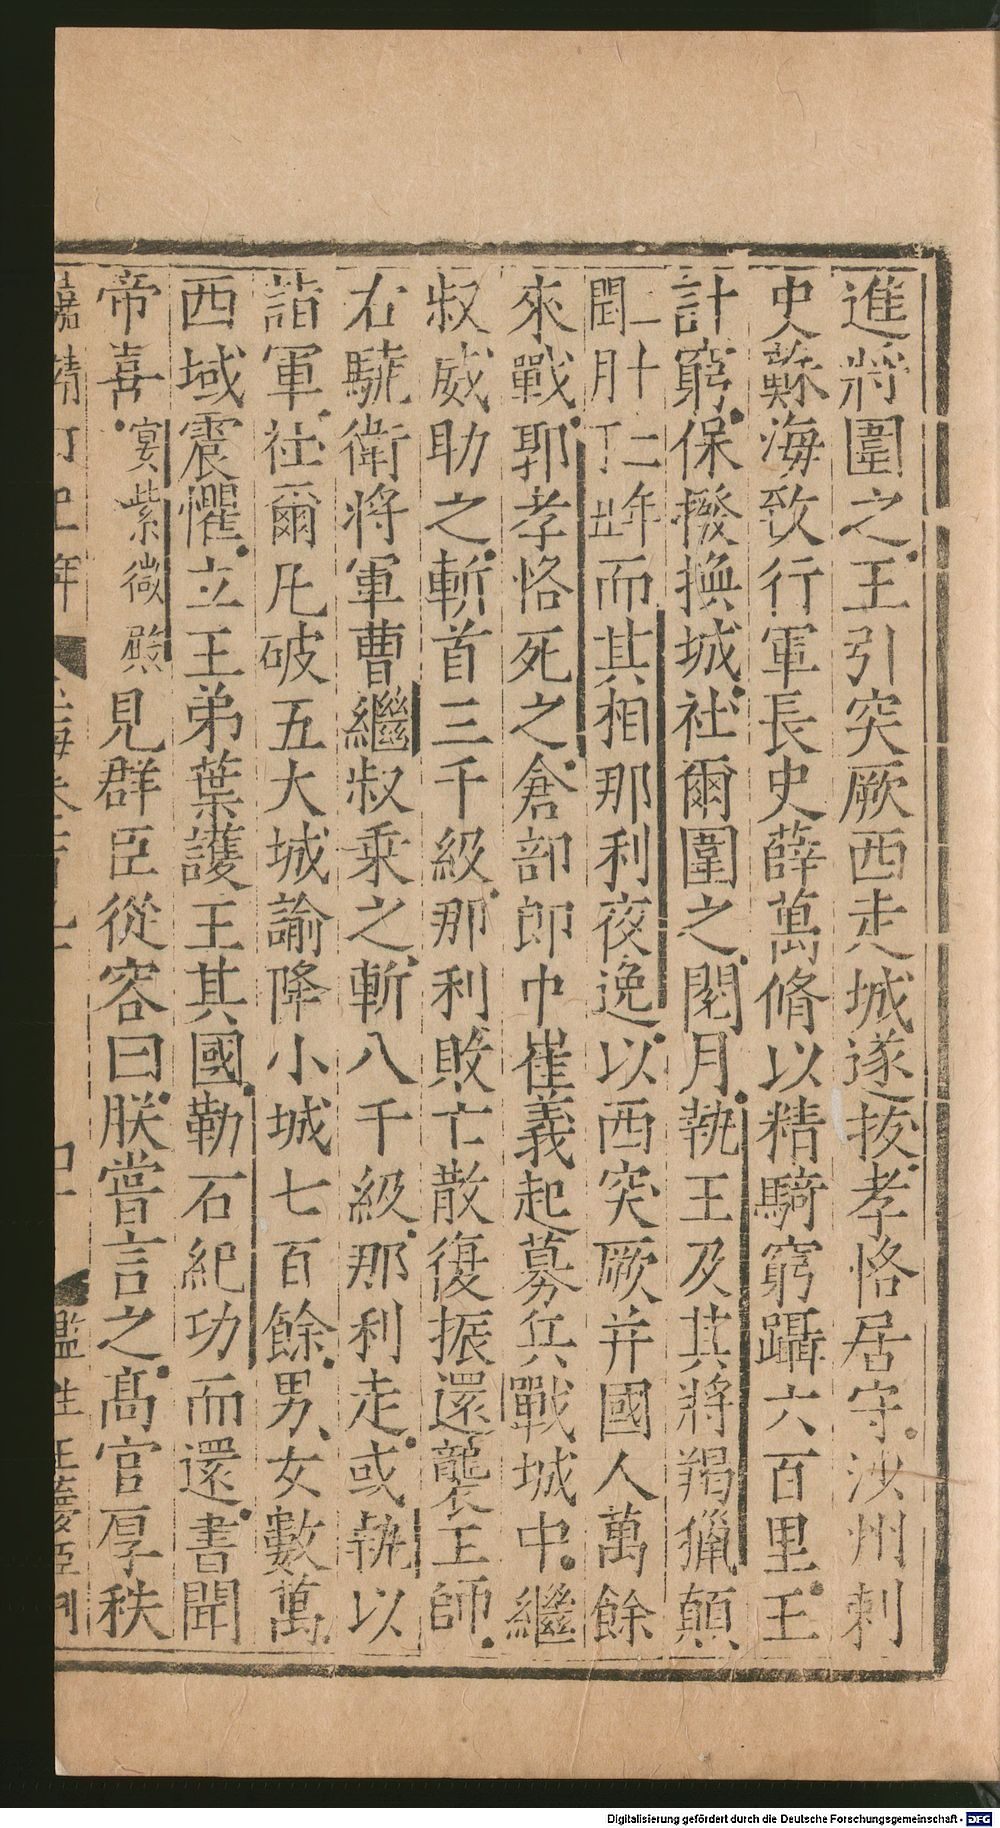 進將圍之王引突厥西走城遂拔孝恪居守沙州刺
史蘇海政行軍長史薛萬脩以精騎窮躡六百里王
計窮保撥換城社爾圍之閱月執王及其將羯獵顛
二十二年閏月丁丑而其相那利夜逸以西突厥并國人萬餘
來戰郭孝恪死之倉部郎中崔義起募兵戰城中繼
叔威助之斬首三千級那利敗亡散復振還襲王師
右驍衛將軍曹繼叔乘之斬八千級那利走或執以
詣軍社爾凡破五大城諭降小城七百餘男女數萬
西域震懼立王弟葉護王其國勒石紀功而還書聞
帝喜宴紫微殿見群臣從容曰朕嘗言之髙官厚秩
嘉靖 年 監生王 臣刊
Digitalisierung gefördert durch die Deutsche Forschungsgemeinschaft - DFG